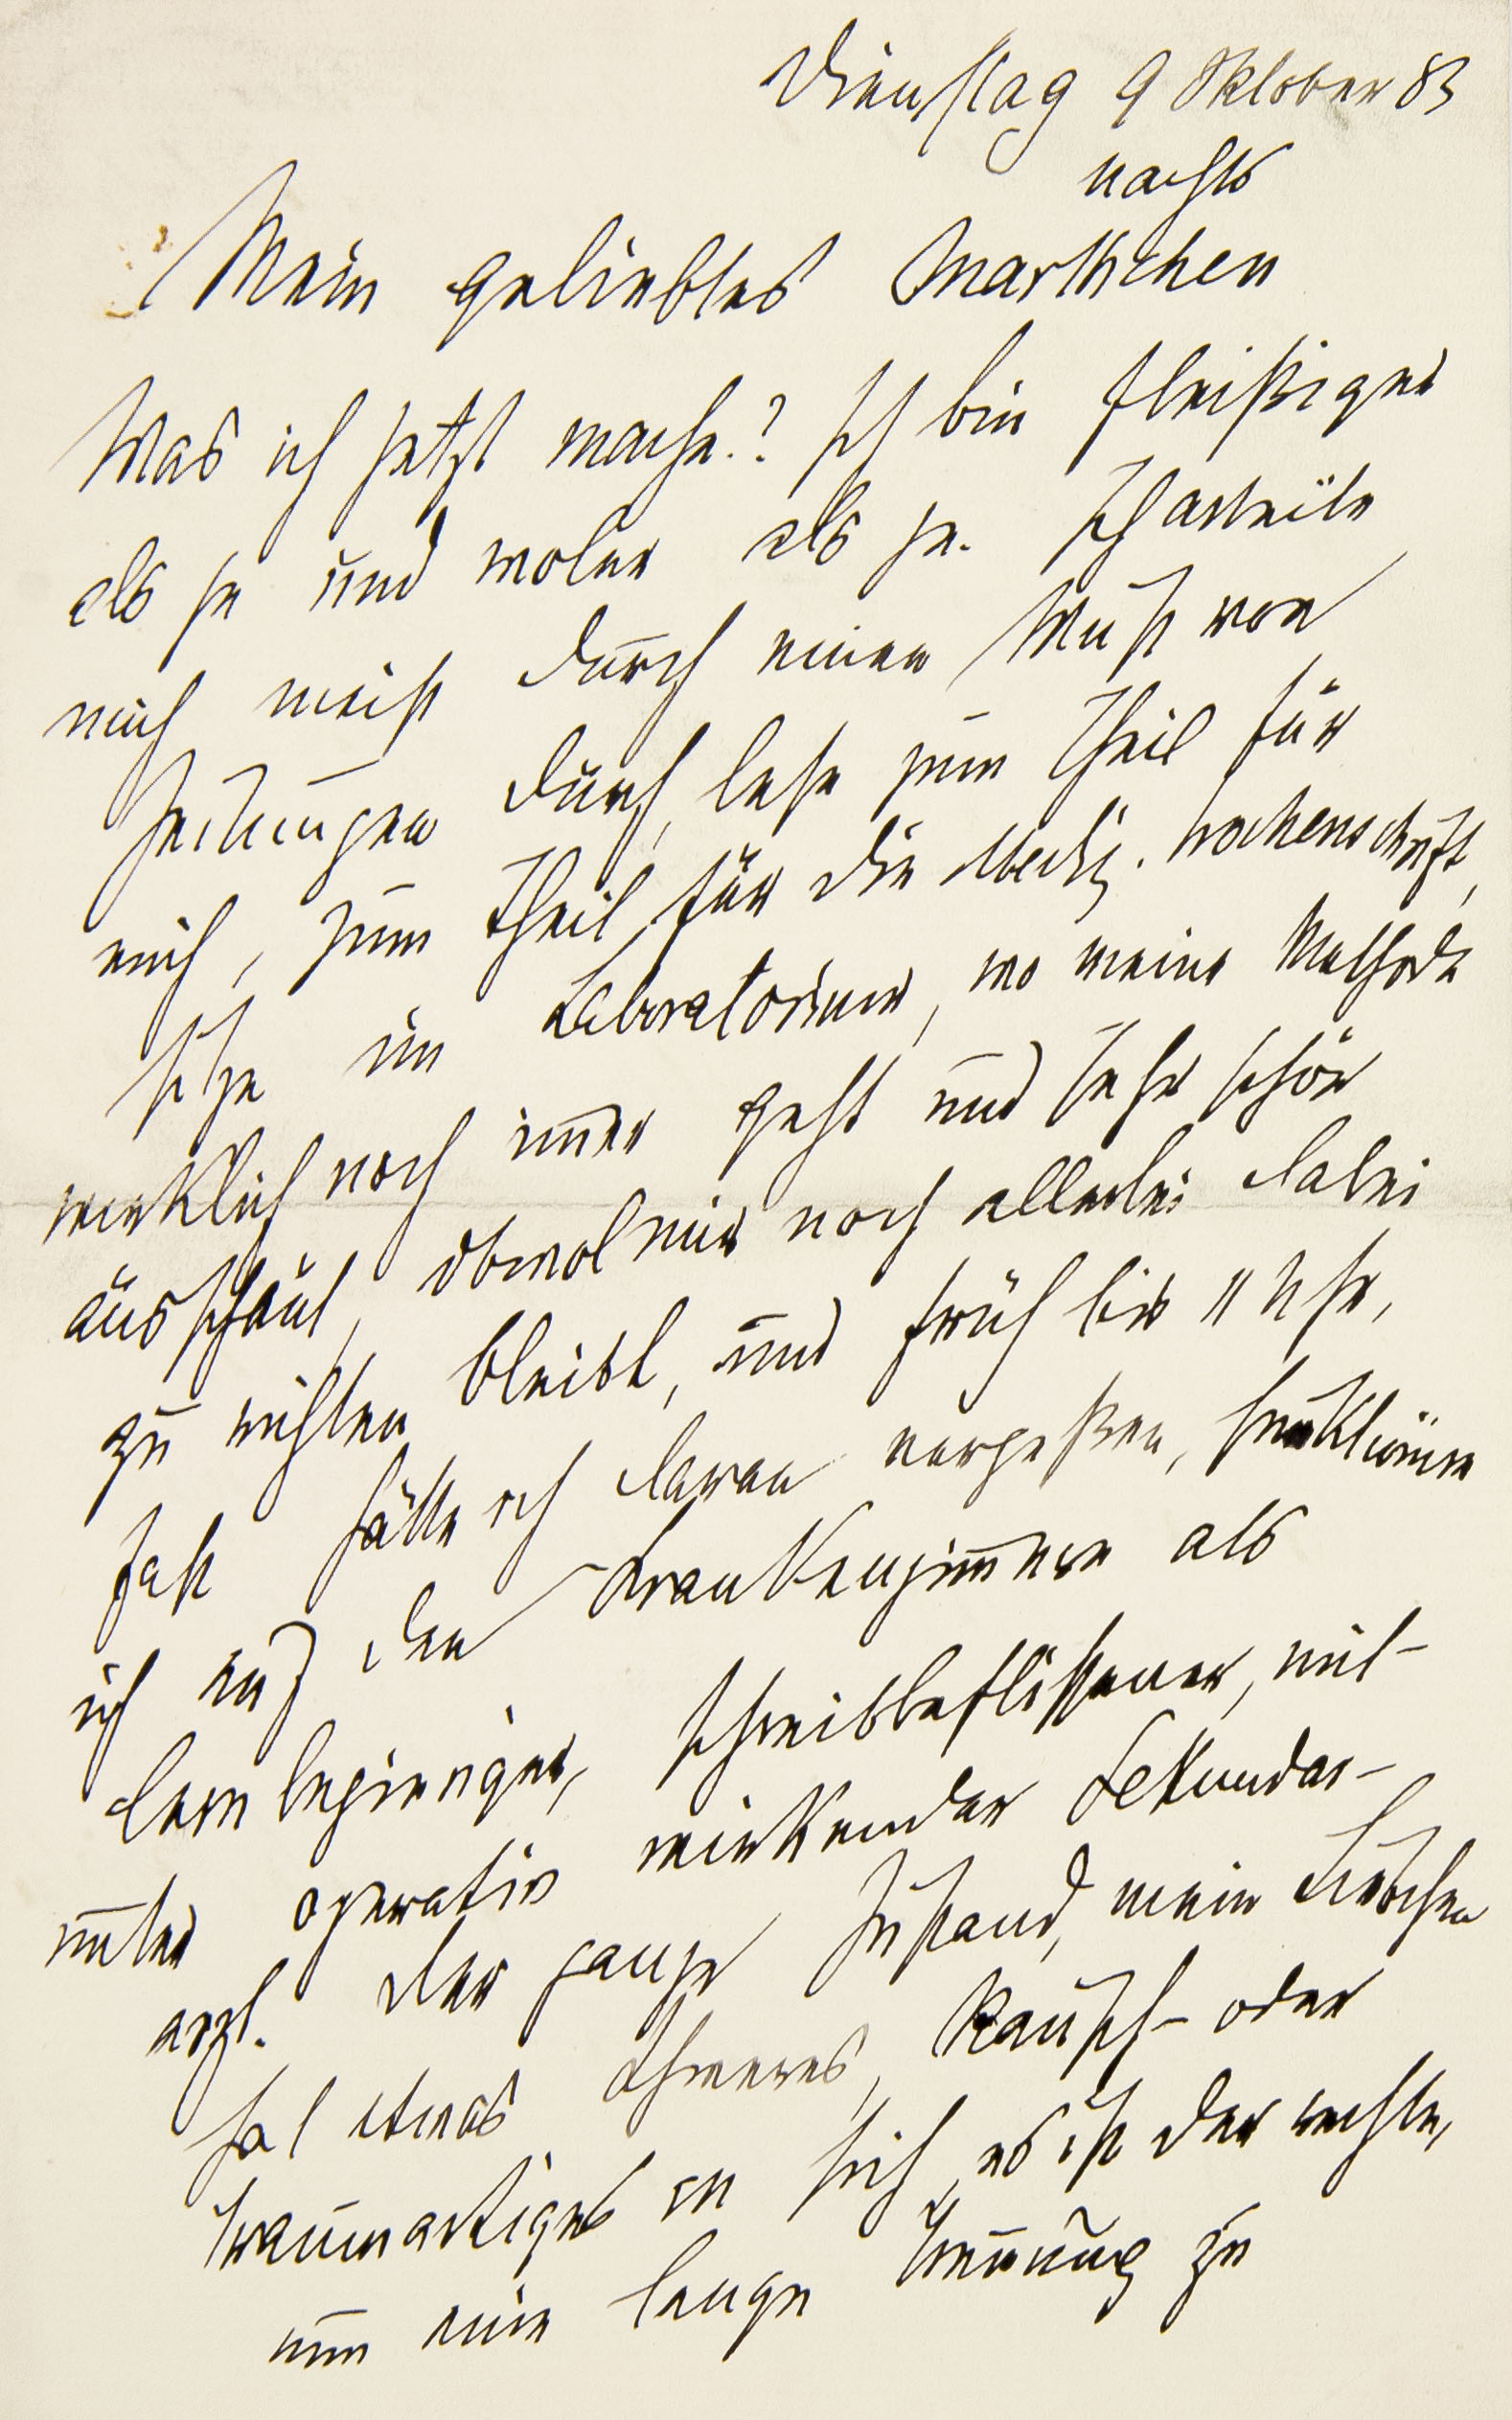 Dienstag 9 Oktober 83
nachts
Mein geliebtes Marthchen
Was ich jetzt mache? Ich bin fleißiger
als je und woler als je. Ich arbeite
mich meist durch einen Wust von
Zeitungen durch, lese zum Theil für
mich, zum Theil für die Mediz. Wochenschrift,
sitze im Laboratorium, wo meine Methode
wirklich noch im̄er geht und sehr schön
ausschaut, obwol mir noch allerlei dabei
zu richten bleibt, und früh bis 11 Uhr,
fast hätte ich daran vergeßen, funktionire
ich auf den Krankenzim̄ern als
lernbegieriger, schreibbeflissener, mit-
unter operativ wirkender Sekundar-
arzt. Der ganze Zustand, mein Liebchen
hat etwas Schweres, Rausch- oder
traumartiges an sich, es ist der rechte,
um eine lange Trennung zu